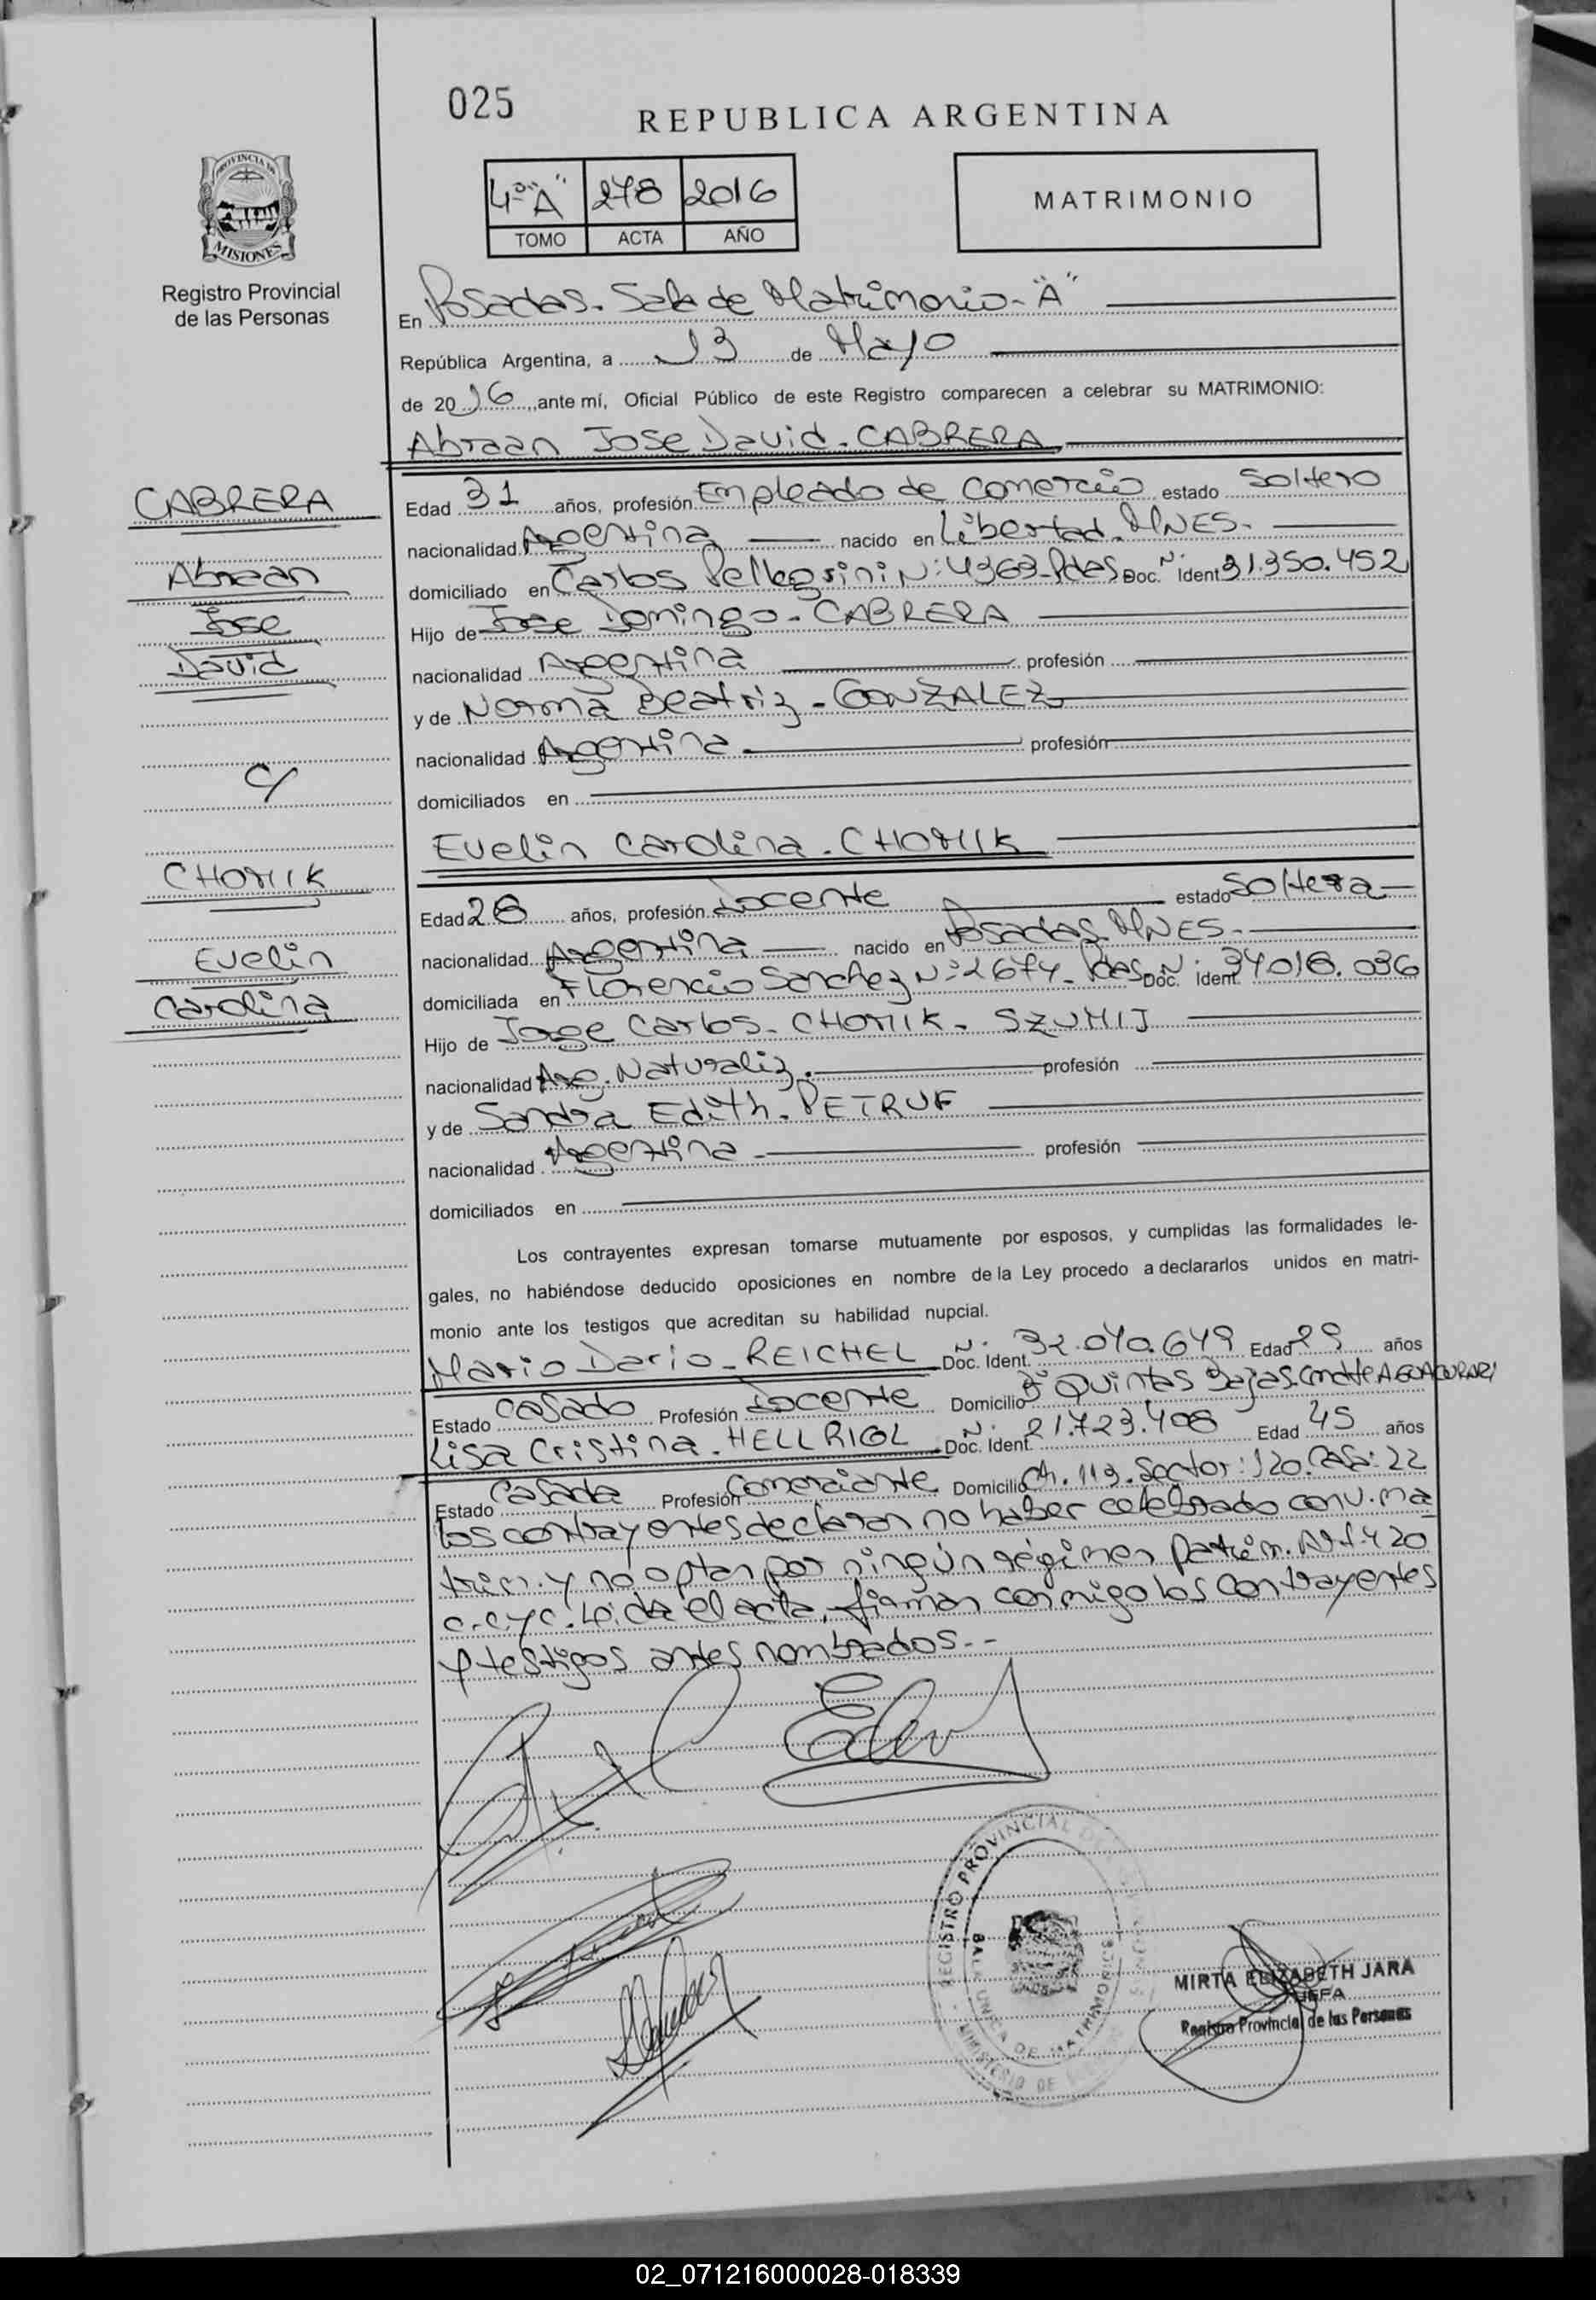 025
REPUBLICA ARGENTINA
PROVINCIA DE
MISIONES
Registro Provincial
de las Personas
4º "A" 278 2016
TOMO ACTA AÑO
MATRIMONIO
En Posadas. Sala de Matrimonio - "A"
República Argentina, a 13 de Mayo
de 2016, ante mí, Oficial Público de este Registro comparecen a celebrar su MATRIMONIO:
Abraan Jose David. CABRERA
CABRERA
Abraan
Jose
David
c/
CHOMIK
Evelin
Carolina
Edad 31 años, profesión Empleado de Comercio estado Soltero
nacionalidad Argentina nacido en Libertad. MNES.
domiciliado en Carlos Pellegrini N: 4363 Pdas Doc. N: Ident 31.350.452
Hijo de Jose Domingo - CABRERA
nacionalidad Argentina profesión
y de Norma Beatriz - GONZALEZ
nacionalidad Argentina profesión
domiciliados en
Evelin Carolina. CHOMIK
Edad 28 años, profesión Docente estado Soltera
nacionalidad Argentina nacido en Posadas MNES.
domiciliada en Florencio Sanchez N: 2674. Pdas Doc. N: Ident. 34.018.096
Hijo de Jorge Carlos - CHOMIK - SZUMIJ
nacionalidad Arg. Naturaliz. profesión
y de Sandra Edith. PETRUF
nacionalidad Argentina profesión
domiciliados en
Los contrayentes expresan tomarse mutuamente por esposos, y cumplidas las formalidades le-
gales, no habiéndose deducido oposiciones en nombre de la Ley procedo a declararlos unidos en matri-
monio ante los testigos que acreditan su habilidad nupcial.
Mario Dario - REICHEL N: Doc. Ident. 32.070.649 Edad 29 años
Estado Casado Profesión Docente Domicilio Bº Quintas Bajas AGUACURARI
Lisa Cristina. HELLRIGL N: Doc. Ident. 21.723.408 Edad 45 años
Estado Casada Profesión Comerciante Domicilio Ch. 119. Sector: 120. Casa: 22
los contrayentes declaran no haber celebrado conv. ma
trim. y no optan por ningún régimen Patrim. Art. 420
c.c y c. Leida el acta, firman conmigo los contrayentes
y testigos antes nombrados. -
REGISTRO PROVINCIAL DE
UNICA DE MATRIMONIOS
MINISTERIO DE
MIRTA ELIZABETH JARA
JEFA
Registro Provincial de las Personas
02_071216000028-018339